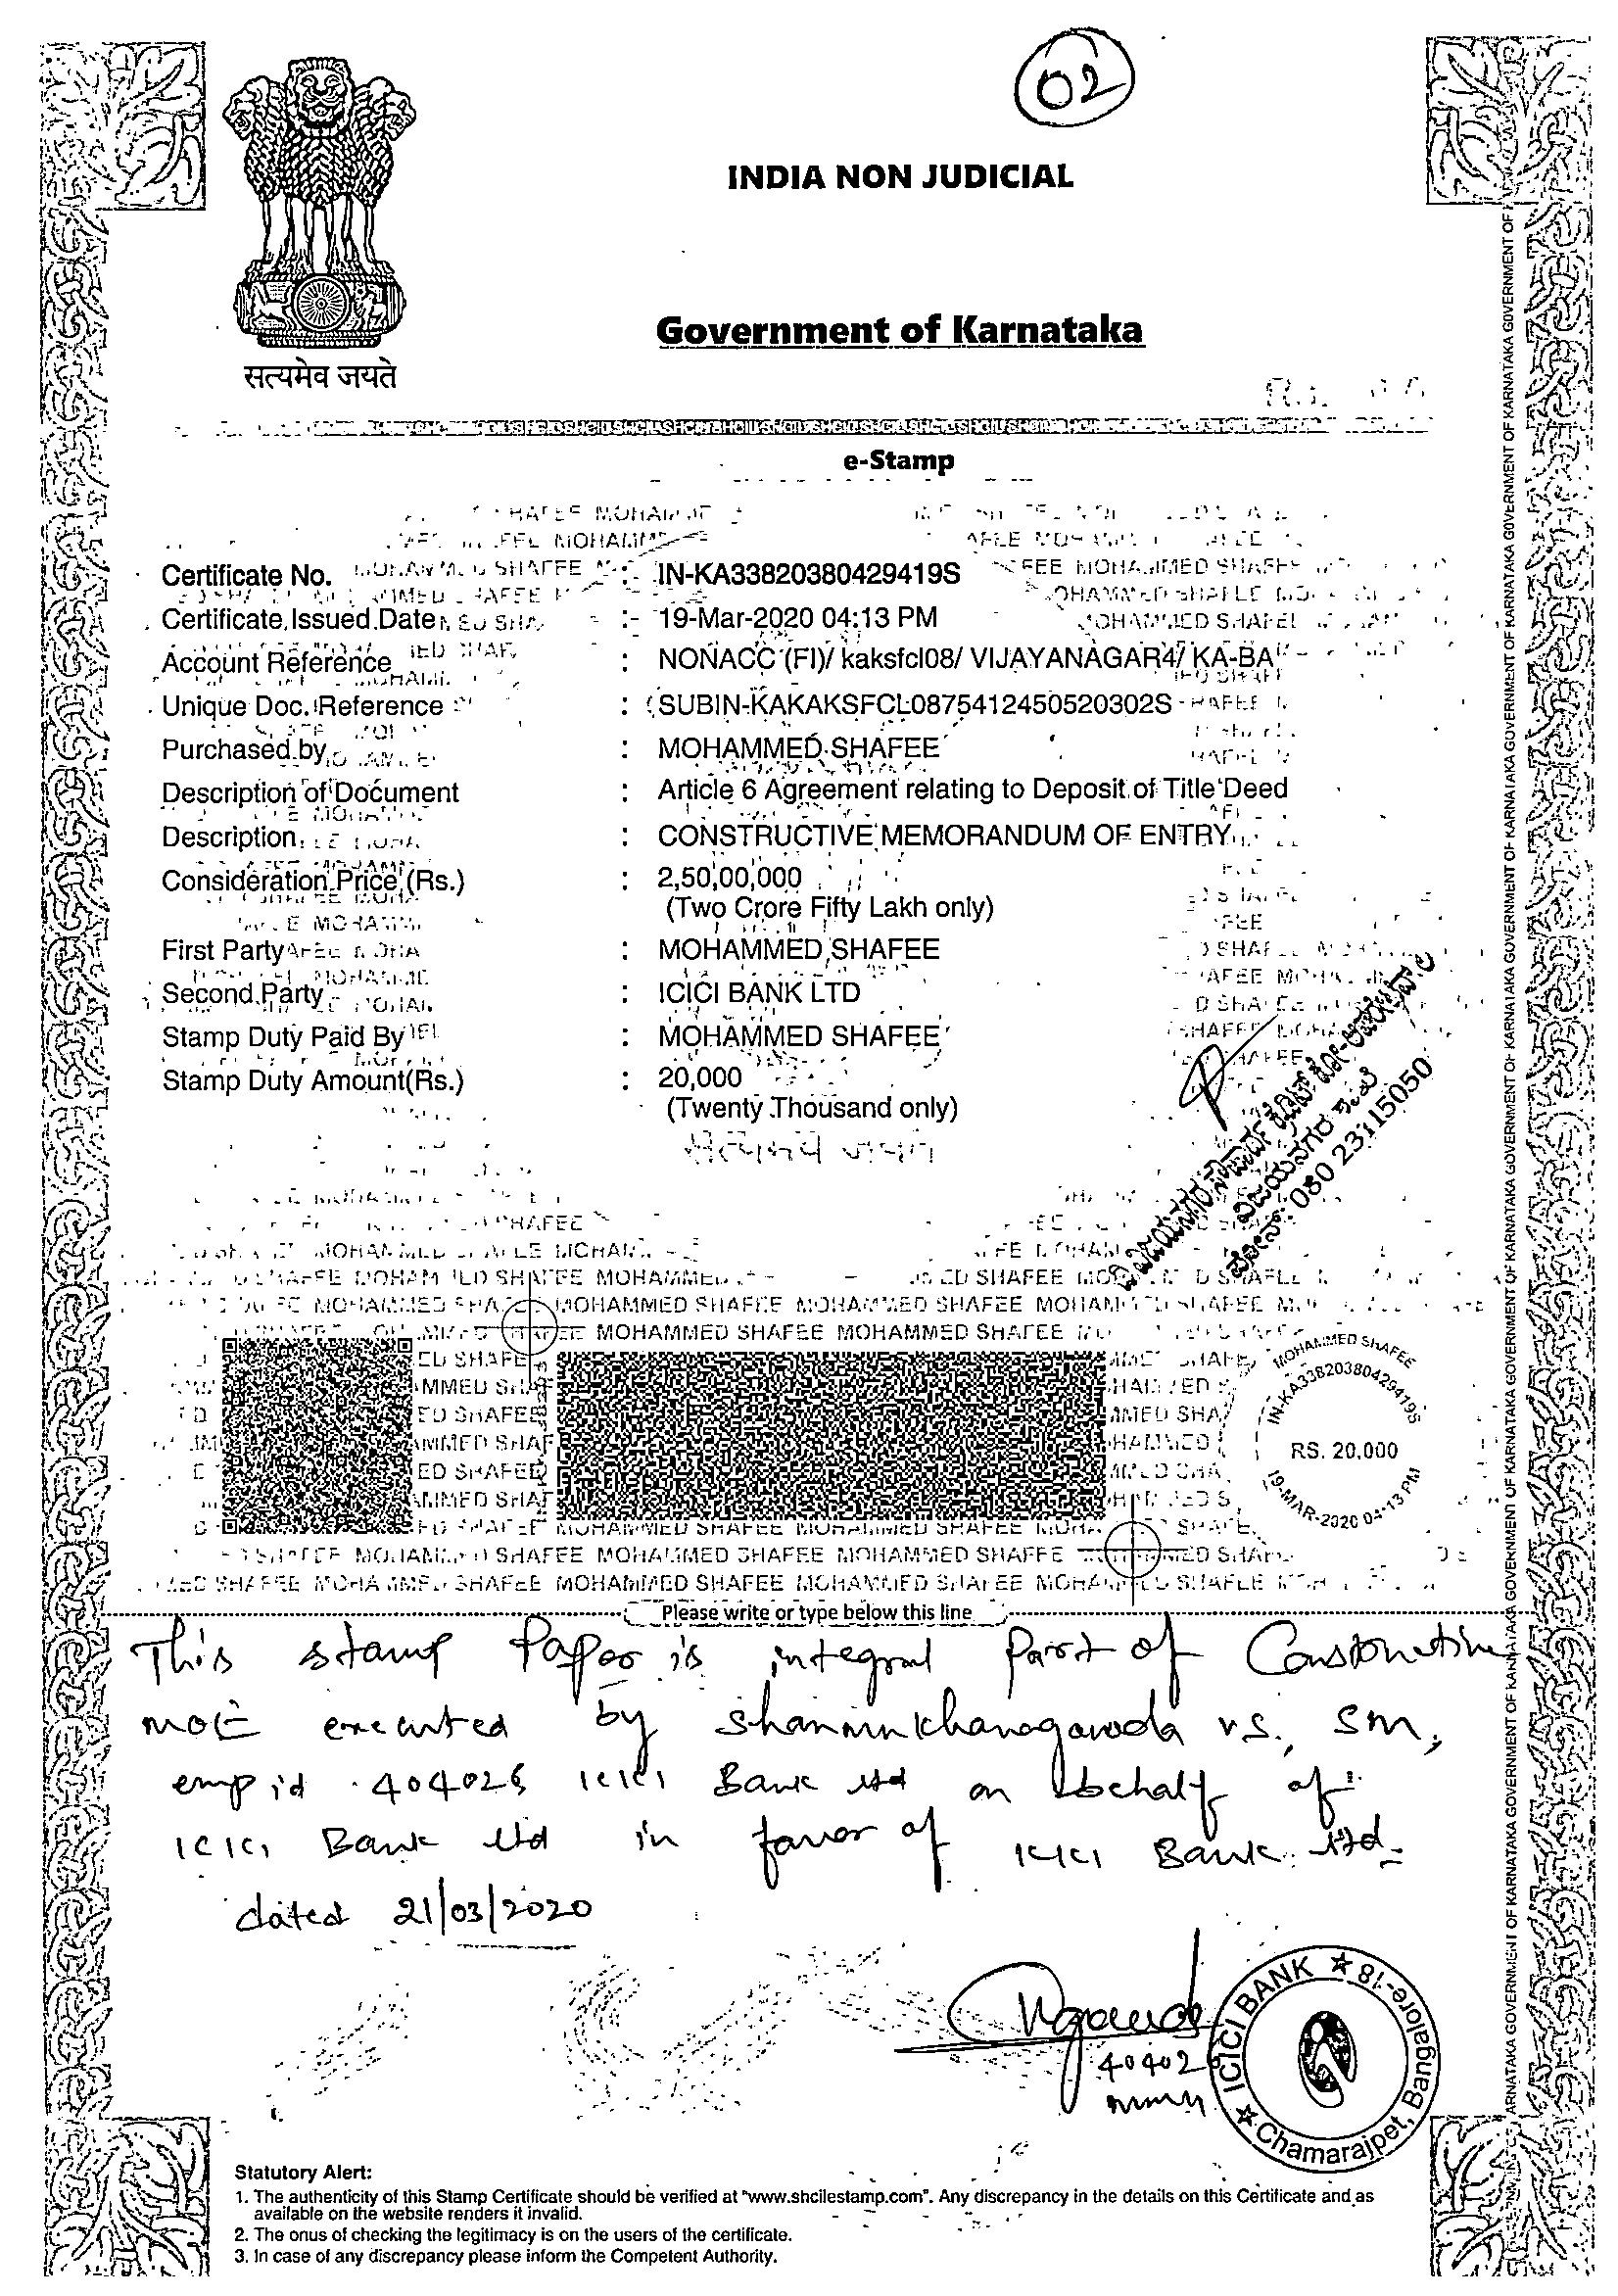 02
INDIA NON JUDICIAL
Government of Karnataka
सत्यमेव जयते
e-Stamp
Certificate No. : IN-KA33820380429419S
Certificate Issued Date : 19-Mar-2020 04:13 PM
Account Reference : NONACC (FI)/ kaksfcl08/ VIJAYANAGAR4/ KA-BA
Unique Doc. Reference : SUBIN-KAKAKSFCL0875412450520302S
Purchased by : MOHAMMED SHAFEE
Description of Document : Article 6 Agreement relating to Deposit of Title Deed
Description : CONSTRUCTIVE MEMORANDUM OF ENTRY
Consideration Price (Rs.) : 2,50,00,000
(Two Crore Fifty Lakh only)
First Party : MOHAMMED SHAFEE
Second Party : ICICI BANK LTD
Stamp Duty Paid By : MOHAMMED SHAFEE
Stamp Duty Amount(Rs.) : 20,000
(Twenty Thousand only)
080 23115050
MOHAMMED SHAFEE
IN-KA33820380429419S
RS. 20,000
19-MAR-2020 04:13 PM
Please write or type below this line
This stamp Paper is integral Part of Constructive
MOE executed by shanmukhanagowda v.s., SM,
emp id 404026 ICICI Bank ltd on behalf of
ICICI Bank ltd in favor of ICICI Bank ltd
dated 21/03/2020
40402
ICICI BANK
Chamarajpet, Bangalore-18
Statutory Alert:
1. The authenticity of this Stamp Certificate should be verified at "www.shcilestamp.com". Any discrepancy in the details on this Certificate and as
available on the website renders it invalid.
2. The onus of checking the legitimacy is on the users of the certificate.
3. In case of any discrepancy please inform the Competent Authority.